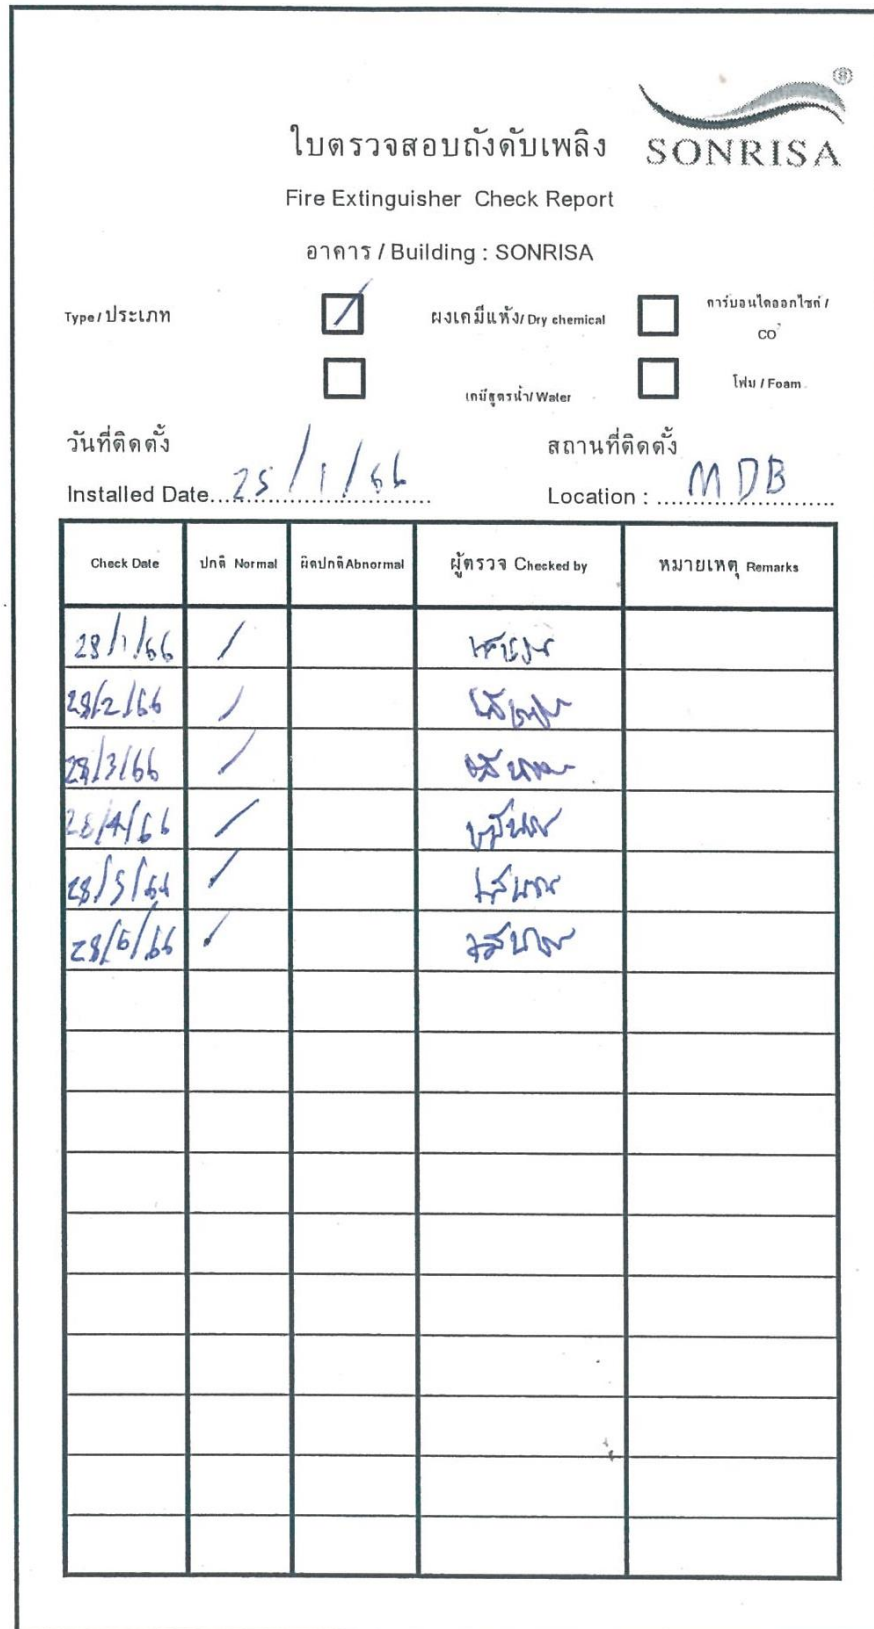 ®
SONRISA
ใบตรวจสอบถังดับเพลิง
Fire Extinguisher Check Report
อาคาร / Building : SONRISA
Type/ประเภท ผงเคมีแห้ง/Dry chemical คาร์บอนไดออกไซค์ /
CO²
เคมีสูตรน้ำ/Water โฟม / Foam
วันที่ติดตั้ง สถานที่ติดตั้ง
Installed Date...25/1/66 Location : ...MDB
Check Date ปกติ Normal ผิดปกติAbnormal ผู้ตรวจ Checked by หมายเหตุ Remarks
28/1/66 /
28/2/66 /
28/3/66 /
28/4/66 /
28/5/66 /
28/6/66 /